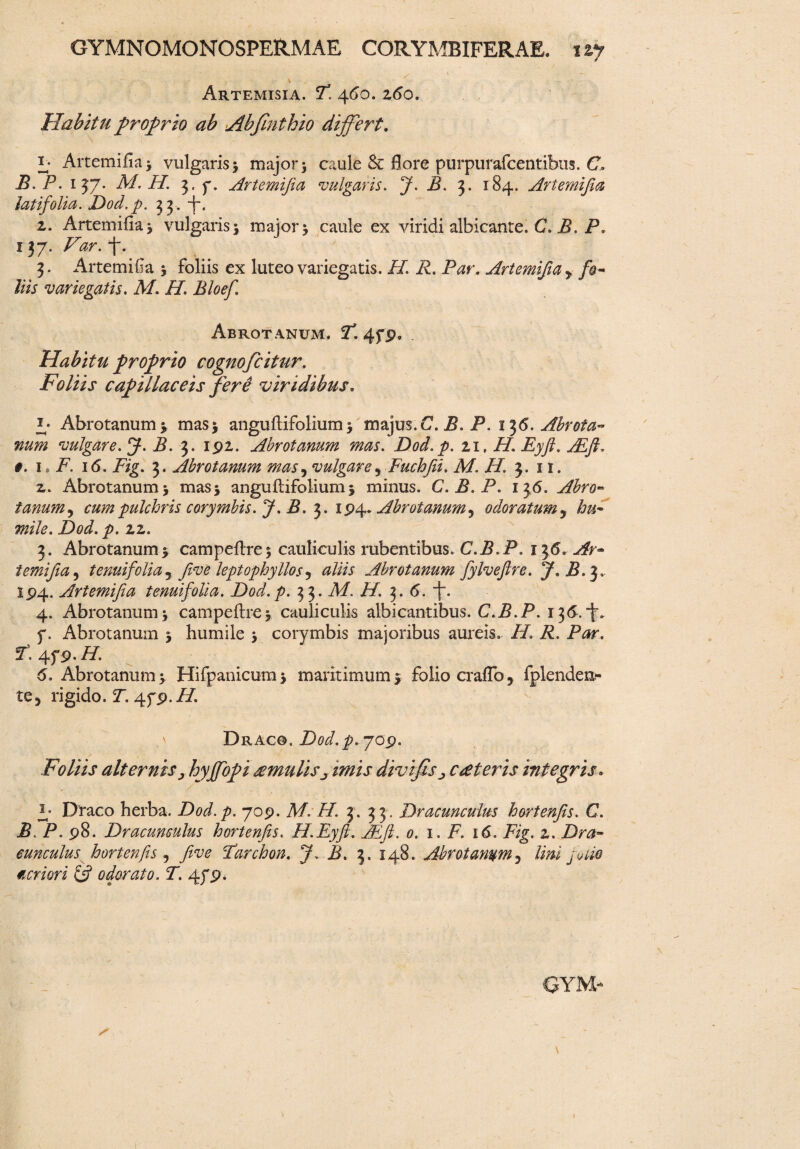 GYMNOMONOSPERMAE CORYMBIFERAE. 127
ARTEMISIA. T. 460. 260.
Habitu proprio ab Abſinthio differt.
1. Artemiſia; vulgaris; major; caule & flore purpuraſcentibus. C.
B. P. 137. M. H. 3. 5. Artemiſia vulgaris. J. B. 3. 184. Artemiſia
latifolia. Dod. p. 33. †.
2. Artemiſia; vulgaris; major; caule ex viridi albicante. C. B. P.
137. Var. †.
3. Artemiſia; foliis ex luteo variegatis. H. R. Par. Artemiſia, fo-
liis variegatis. M. H. Bloeſ.
ABROTANUM. T. 459.
Habitu proprio cognoſcitur.
Foliis capillaceis ferè viridibus.
1. Abrotanum; mas; anguſtifolium; majus. C. B. P. 136. Abrota-
num vulgare. J. B. 3. 192. Abrotanum mas. Dod. p. 21. H. Eyſt. Æſt.
o. 1. F. 16. Fig. 3. Abrotanum mas, vulgare, Fuchſii. M. H. 3. 11.
2. Abrotanum; mas; anguſtifolium; minus. C. B. P. 136. Abro-
tanum, cum pulchris corymbis. J. B. 3. 194. Abrotanum, odoratum, hu-
mile. Dod. p. 22.
3. Abrotanum; campeſtre; cauliculis rubentibus. C. B. P. 136. Ar-
temiſia, tenuifolia, ſive leptophyllos, aliis Abrotanum ſylveſtre. J. B. 3.
194. Artemiſia tenuifolia. Dod. p. 33. M. H. 3. 6. †.
4. Abrotanum; campeſtre; cauliculis albicantibus. C. B. P. 136. †.
5. Abrotanum; humile; corymbis majoribus aureis. H. R. Par.
T. 459. H.
6. Abrotanum; Hiſpanicum; maritimum; folio craſſo, ſplenden-
te, rigido. T. 459. H.
DRACO. Dod. p. 709.
Foliis alternis, hyſſopi æmulis, imis diviſis, cæteris integris.
1. Draco herba. Dod. p. 709. M. H. 3. 33. Dracunculus hortenſis. C.
B. P. 98. Dracunculus hortenſis. H. Eyſt. Æſt. o. 1. F. 16. Fig. 2. Dra-
cunculus hortenſis, ſive Tarchon. J. B. 3. 148. Abrotanum, lini folio
acriori & odorato. T. 459.
GYM-